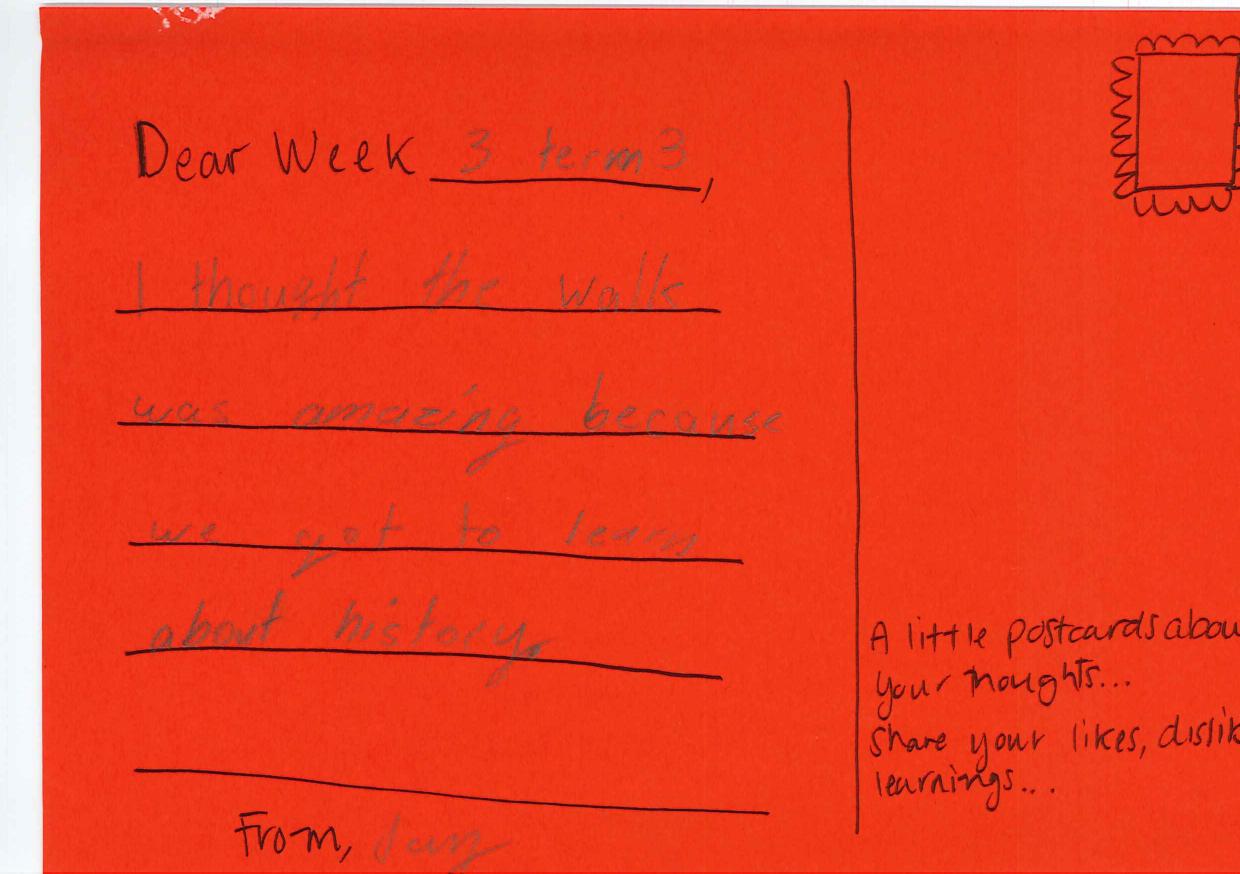 Dear Week 3 term 3,
I thought the walk
was amazing because
we got to learn
about history.
From,
A little postcards abou
your thoughts...
Share your likes, dislik
learnings...